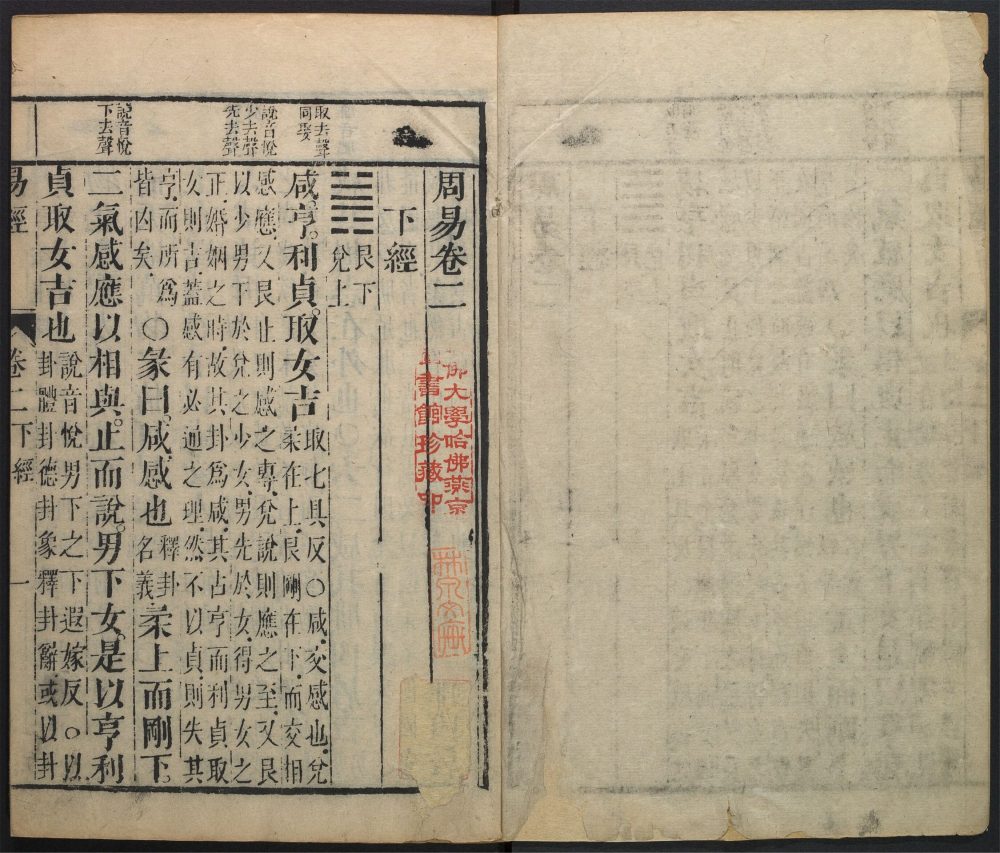 取去聲
同娶
說音悅
少去聲
先去聲
說音悅
下去聲
周易卷二
下經
䷞ 艮下
兌上
咸。亨。利貞。取女吉 取七具反〇咸交感也兌
柔在上艮剛在下而交相
感應又艮止則感之專兌說則應之至又艮
以少男下於兌之少女男先於女得男女之
正婚姻之時故其卦爲咸其占亨而利貞取
女則吉蓋感有必通之理然不以貞則失其
亨而所爲
皆凶矣 〇彖曰。咸感也 釋卦
名義 柔上而剛下。
二氣感應以相與。止而說。男下女。是以亨利
貞取女吉也 說音悅男下之下遐嫁反〇以
卦體卦德卦象釋卦辭或以卦
易經 卷二下經 一
大學哈佛燕京
書館珍藏印